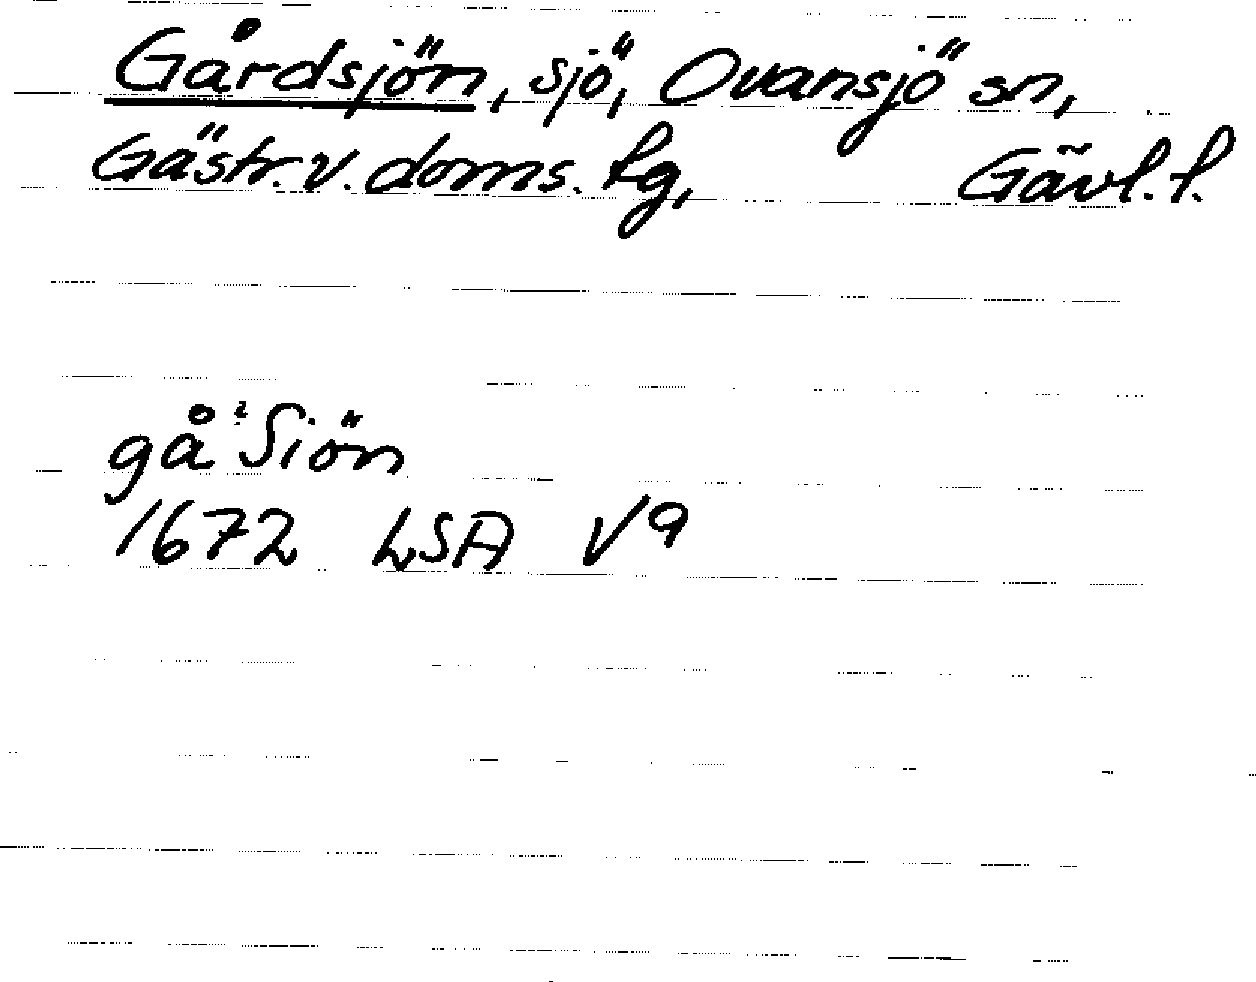 Gårdsjön, sjö, Ovansjö sn,
Gästr. v. doms. tg, Gävl. l.
gå Siön
1672 LSA V9